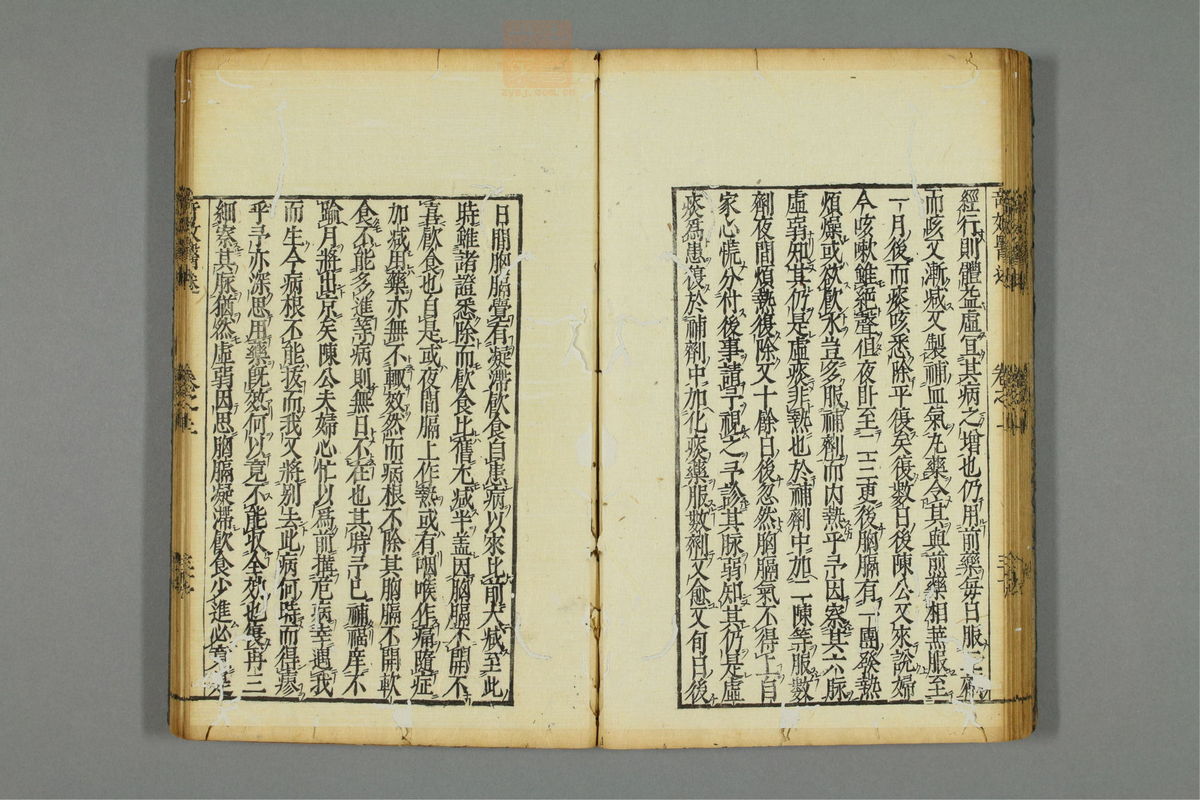 經行則體益虛宜其病之增也仍用前藥每日服二劑
而咳又漸減又製補血氣丸藥令其與前藥相兼服至
一月後而痰咳悉除平復矣復數日後陳公又來說婦
今咳嗽雖絕聲但夜臥至二三更後胸膈有一團發熱
煩燥或欲飲水豈多服補劑而內熱乎予因察其六脉
虛弱知其仍是虛痰非熱也於補劑中加二陳等服數
劑夜間煩熱復除又十餘日後忽然胸膈氣不得上自
家心慌分付後事請予視之予診其脉弱知其仍是虛
痰為患復於補劑中加化痰藥服數劑又愈又旬日後
日間胸膈覺有凝滯飲食自患病以來比前大減至此
時雖諸證悉除而飲食比舊尤減半盖因胸膈不開不
喜飲食也自是或夜間膈上作熱或有咽喉作痛隨症
加減用藥亦無不輙效然而病根不除其胸膈不開軟
食不能多進等病則無日不在也其時予已補福庠不
踰月將出京矣陳公夫婦心忙以為前攖危病幸遇我
而生今病根不能拔而我又將别去此病何時而得瘳
乎予亦深思用藥既效何以竟不能收全效也每再三
細察其脉猶然虛弱因思胸膈凝滯飲食少進必
奇效醫述
卷之